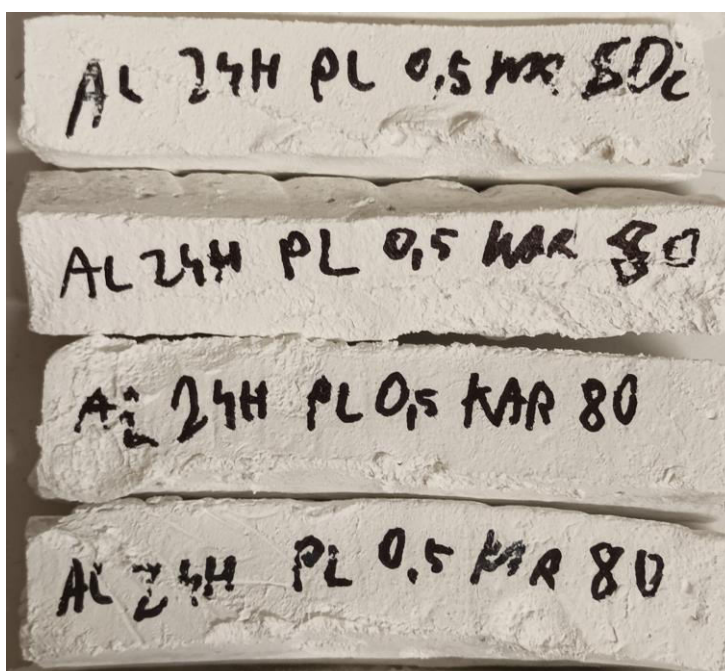 AL 24H PL 0,5 KAR 80c
AL 24H PL 0,5 KAR 80
AL 24H PL 0,5 KAR 80
AL 24H PL 0,5 KAR 80